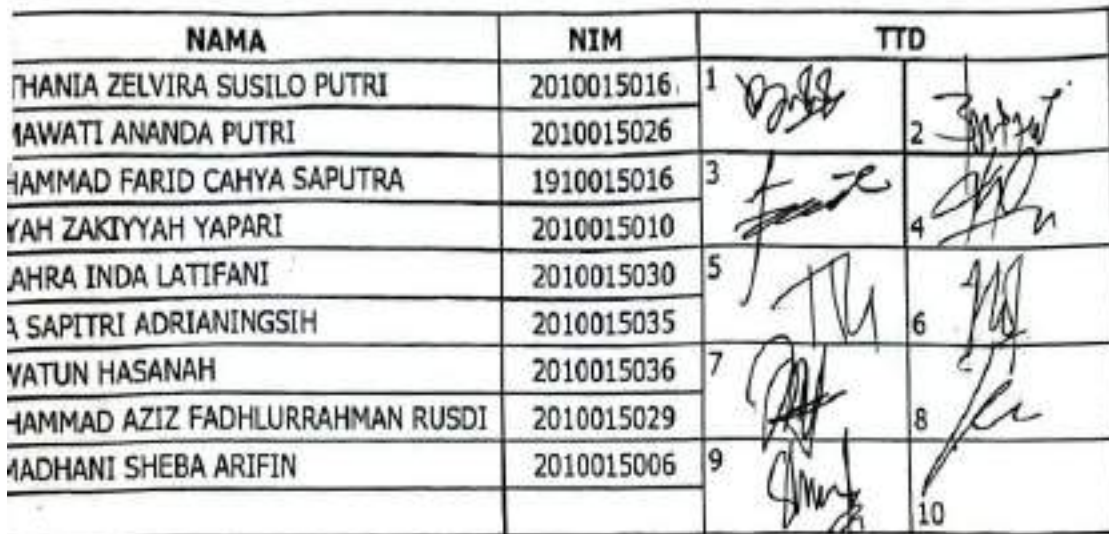 NAMA NIM TTD
THANIA ZELVIRA SUSILO PUTRI 2010015016 1
MAWATI ANANDA PUTRI 2010015026 2
HAMMAD FARID CAHYA SAPUTRA 1910015016 3
YAH ZAKIYYAH YAPARI 2010015010 4
AHRA INDA LATIFANI 2010015030 5
A SAPITRI ADRIANINGSIH 2010015035 6
WATUN HASANAH 2010015036 7
HAMMAD AZIZ FADHLURRAHMAN RUSDI 2010015029 8
MADHANI SHEBA ARIFIN 2010015006 9
10